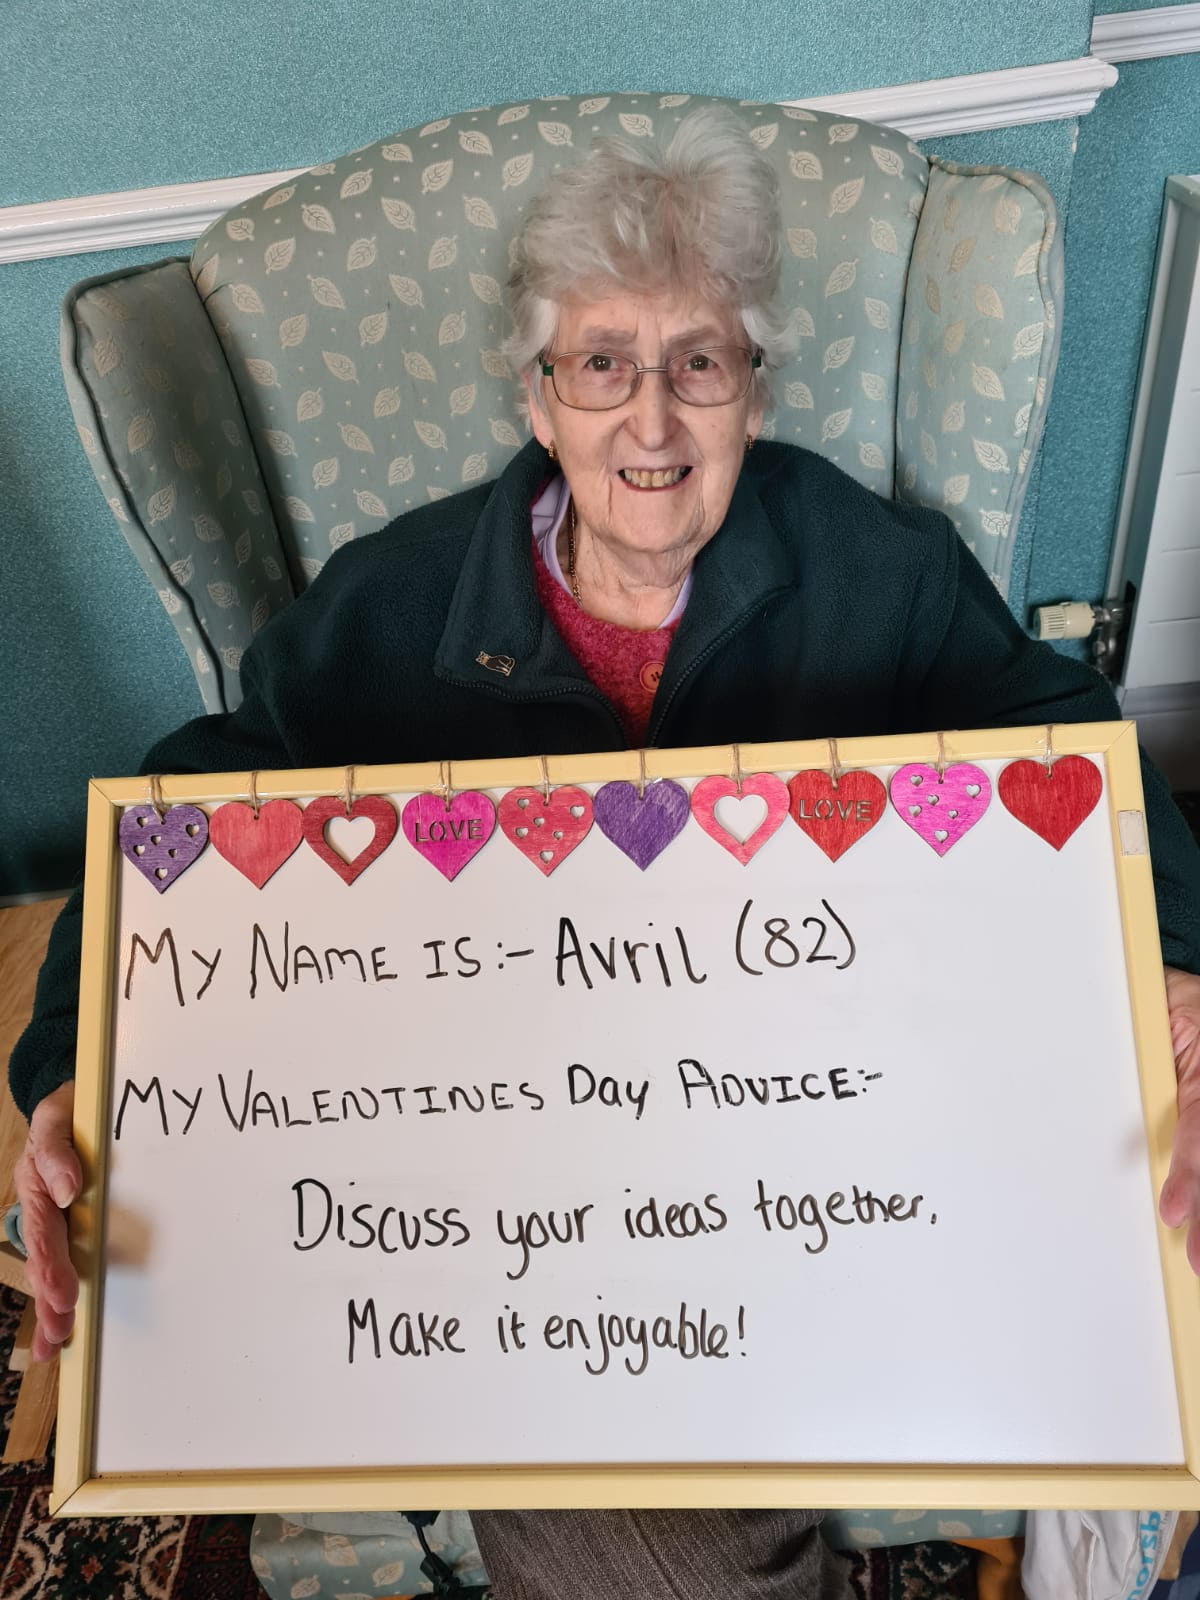 LOVE
LOVE
My NAME IS:- Avril (82)
My VALENTINES Day ADVICE:-
Discuss your ideas together.
Make it enjoyable!